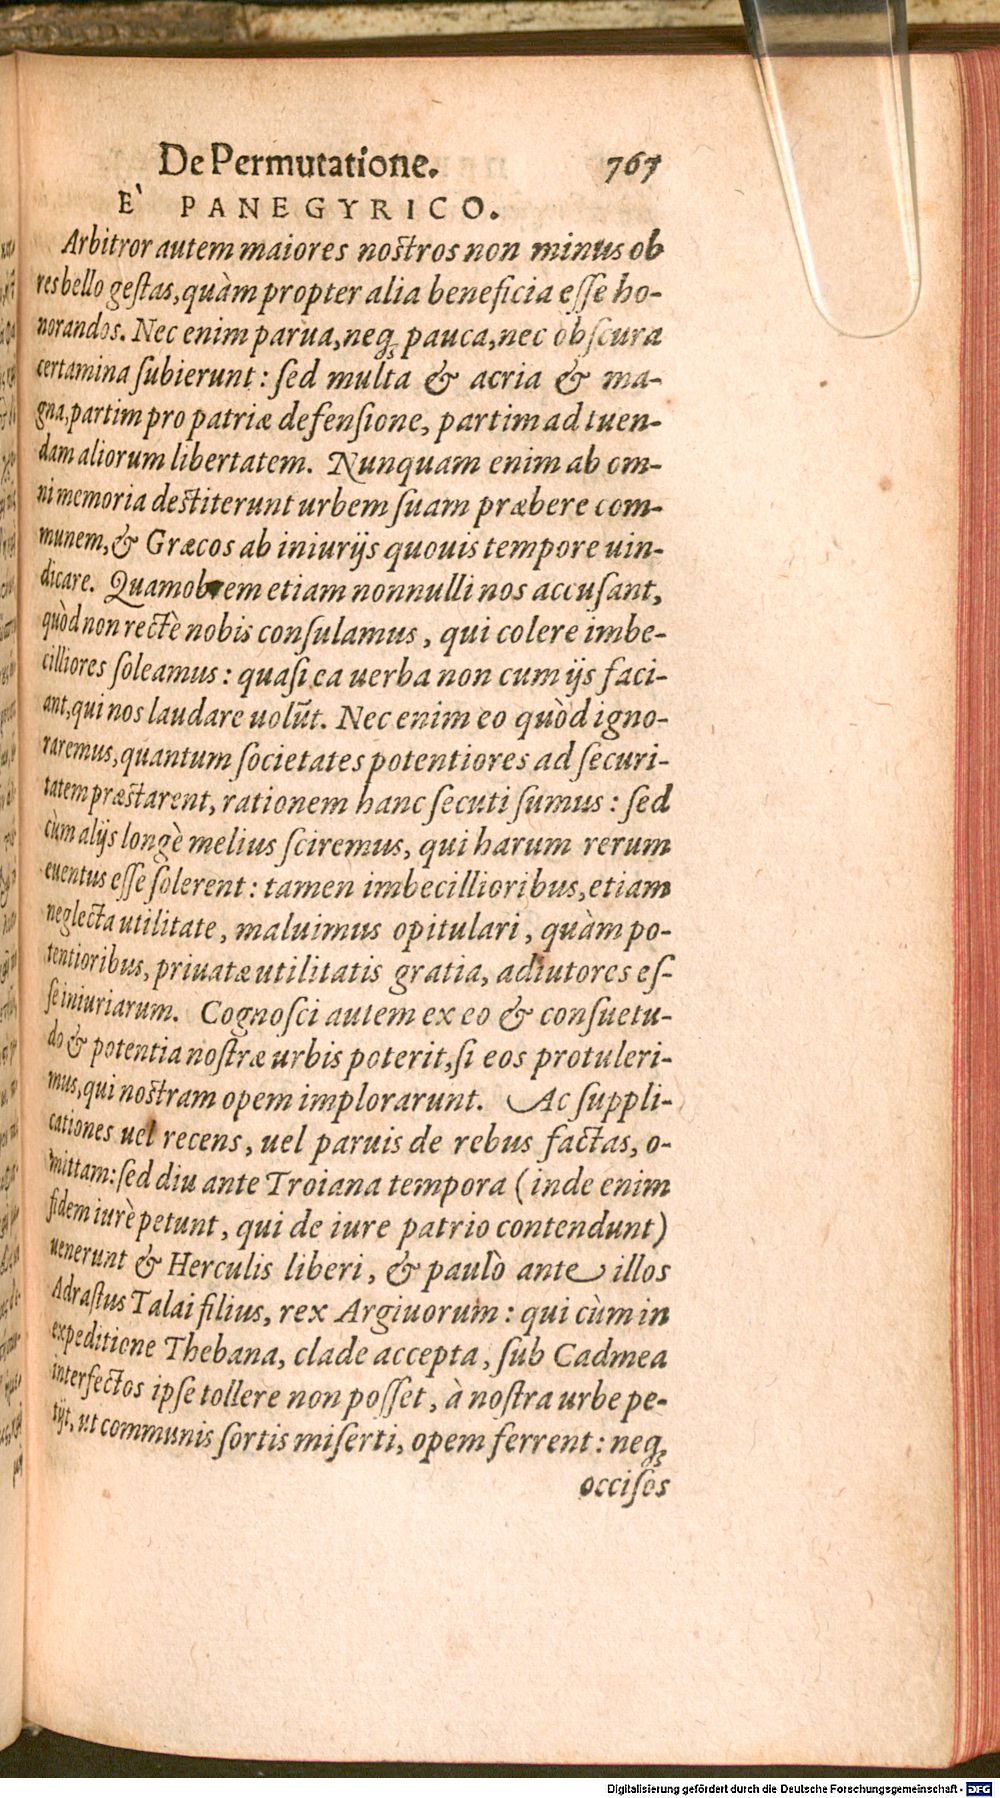 De Permutatione. 767
E` PANEGYRICO.
Arbitror autem maiores nostros non minus ob
res bello gestas, quàm propter alia beneficia esse ho-
norandos. Nec enim parua, neq; pauca, nec obscura
certamina subierunt: sed multa & acria & ma-
gna, partim pro patriæ defensione, partim ad tuen-
dam aliorum libertatem. Nunquam enim ab om-
ni memoria destiterunt urbem suam præbere com-
munem, & Græcos ab iniurijs quouis tempore uin-
dicare. Quamobrem etiam nonnulli nos accusant,
quòd non rectè nobis consulamus, qui colere imbe-
cilliores soleamus: quasi ea uerba non cum ijs faci-
ant, qui nos laudare uolũt. Nec enim eo quòd igno-
raremus, quantum societates potentiores ad securi-
tatem præstarent, rationem hanc secuti sumus: sed
cùm alijs longè melius sciremus, qui harum rerum
euentus esse solerent: tamen imbecillioribus, etiam
neglecta utilitate, maluimus opitulari, quàm po-
tentioribus, priuatæ utilitatis gratia, adiutores es-
se iniuriarum. Cognosci autem ex eo & consuetu-
do & potentia nostræ urbis poterit, si eos protuleri-
mus, qui nostram opem implorarunt. Ac suppli-
cationes uel recens, uel paruis de rebus factas, o-
mittam: sed diu ante Troiana tempora (inde enim
fidem iurè petunt, qui de iure patrio contendunt)
uenerunt & Herculis liberi, & paulò ante illos
Adrastus Talai filius, rex Argiuorum: qui cùm in
expeditione Thebana, clade accepta, sub Cadmea
interfectos ipse tollere non posset, à nostra urbe pe-
tijt, ut communis sortis miserti, opem ferrent: neq;
occisos
Digitalisierung gefördert durch die Deutsche Forschungsgemeinschaft - DFG